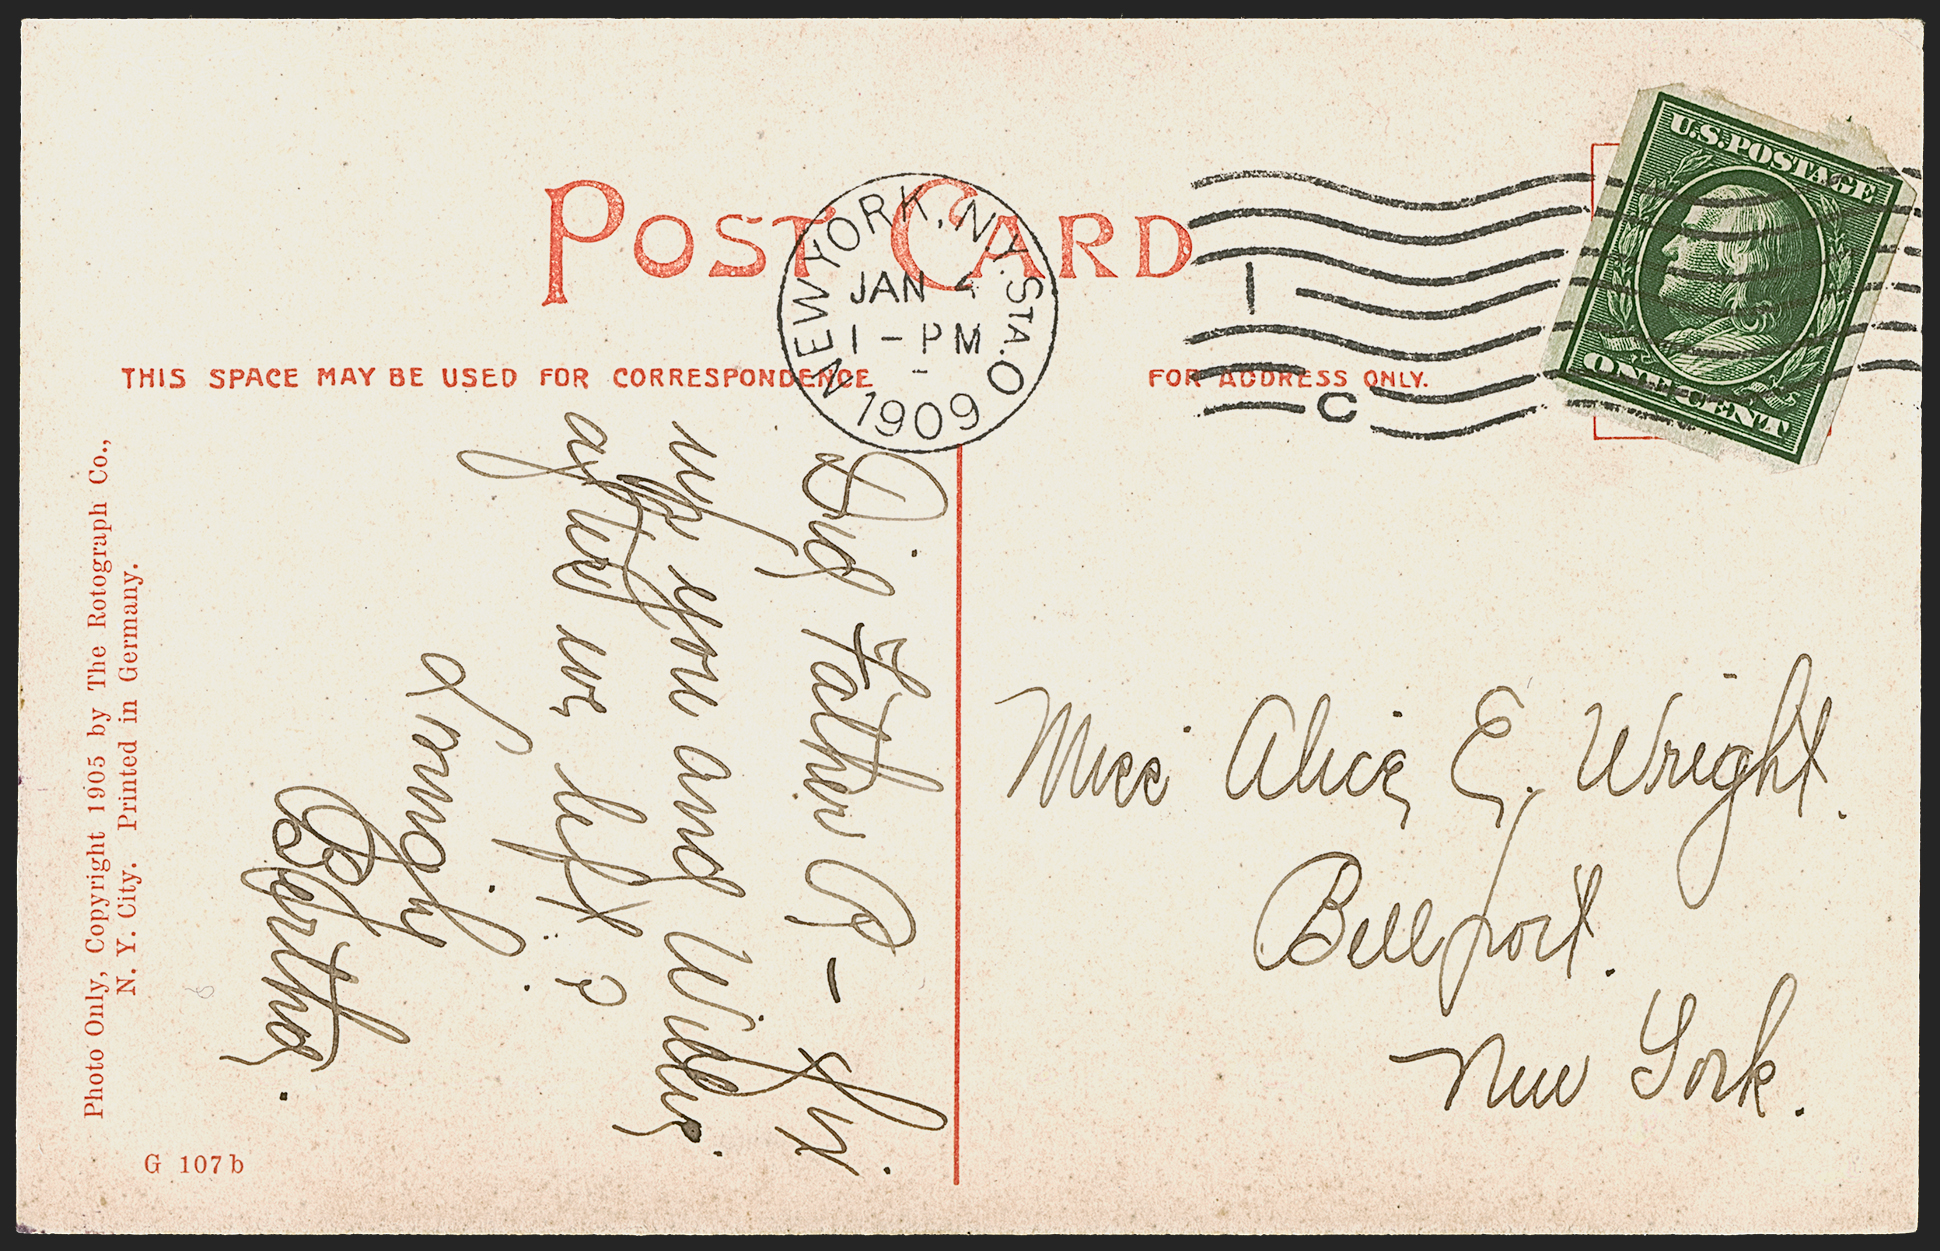 POST CARD
NEW YORK, N.Y. STA. O
JAN 4
1 - PM
1909
1
C
U.S. POSTAGE
ONE CENT
THIS SPACE MAY BE USED FOR CORRESPONDENCE
FOR ADDRESS ONLY.
Did Father P - fix
up you and Wilbur
after we left?
Lovingly
Bertha.
Miss Alice E. Wright.
Bellport.
New York.
Photo Only, Copyright 1905 by The Rotograph Co.,
N. Y. City. Printed in Germany.
G 107b